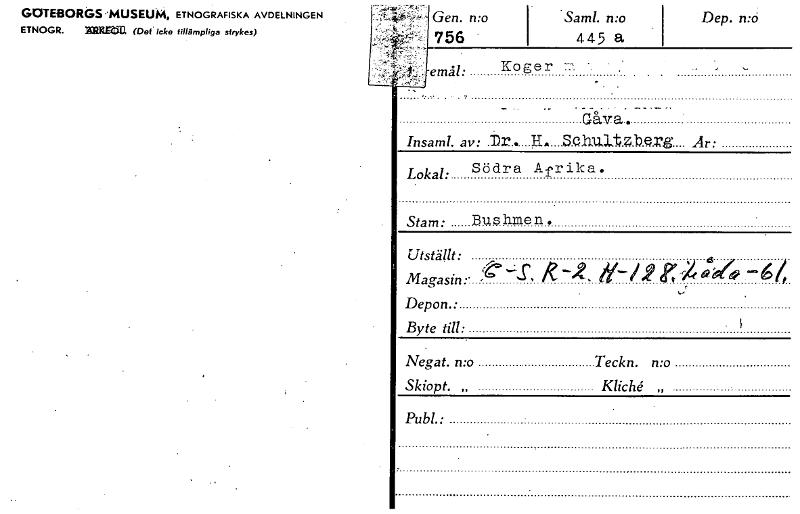 GÖTEBORGS MUSEUM, ETNOGRAFISKA AVDELNINGEN
ETNOGR. ARKEOL. (Det icke tillämpliga strykes)
Gen. n:o Saml. n:o Dep. n:o
756 445 a
emål: Koger
Gåva.
Insaml. av: Dr. H. Schultzberg År:
Lokal: Södra Afrika.
Stam: Bushmen.
Utställt:
Magasin: C-S. R-2. H-128. Låda-61.
Depon.:
Byte till:
Negat. n:o Teckn. n:o
Skiopt. „ Kliché „
Publ.: